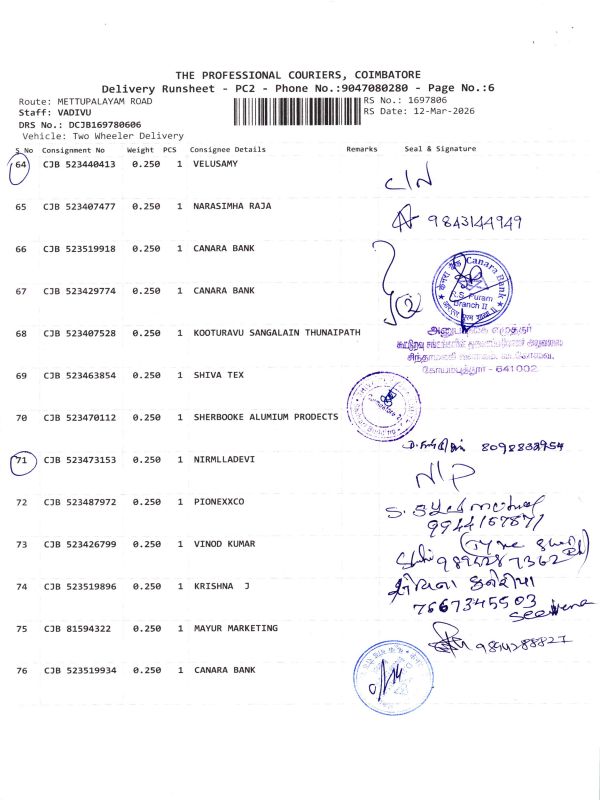 THE PROFESSIONAL COURIERS, COIMBATORE
Delivery Runsheet - PC2 - Phone No.:9047080280 - Page No.:6
Route: METTUPALAYAM ROAD
Staff: VADIVU
DRS No.: DCJB169780606
Vehicle: Two Wheeler Delivery
RS No.: 1697806
RS Date: 12-Mar-2026
S No Consignment No Weight PCS Consignee Details Remarks Seal & Signature
64 CJB 523440413 0.250 1 VELUSAMY
C/N
65 CJB 523407477 0.250 1 NARASIMHA RAJA
9843144949
66 CJB 523519918 0.250 1 CANARA BANK
Canara Bank
67 CJB 523429774 0.250 1 CANARA BANK
2
Branch II
68 CJB 523407528 0.250 1 KOOTURAVU SANGALAIN THUNAIPATH
கோயமுத்தூர் - 641002
69 CJB 523463854 0.250 1 SHIVA TEX
70 CJB 523470112 0.250 1 SHERBOOKE ALUMIUM PRODECTS
71 CJB 523473153 0.250 1 NIRMLLADEVI
N/P
72 CJB 523487972 0.250 1 PIONEXXCO
9944167871
73 CJB 523426799 0.250 1 VINOD KUMAR
74 CJB 523519896 0.250 1 KRISHNA J
7667345503
75 CJB 81594322 0.250 1 MAYUR MARKETING
76 CJB 523519934 0.250 1 CANARA BANK